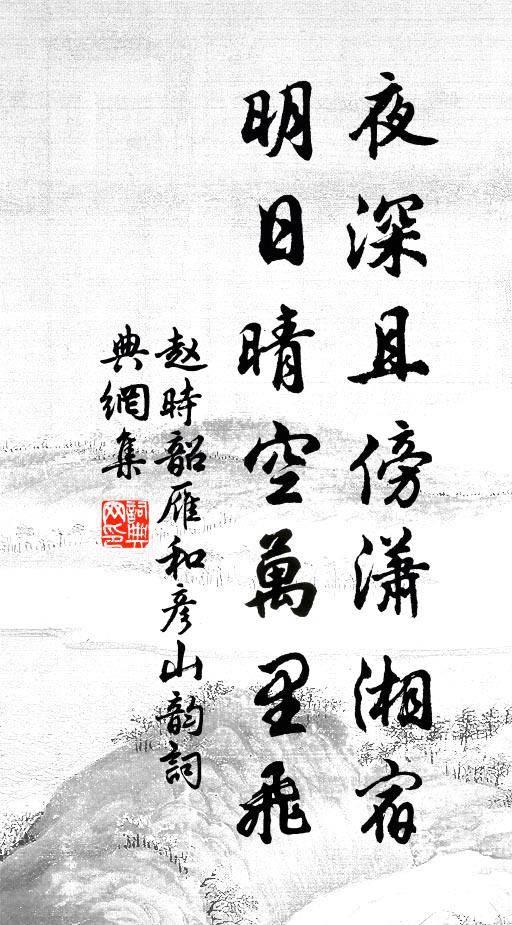 夜深且傍瀟湘宿
明日晴空萬里飛
赵時韶雁和彦山韵詞
典網集
詞典
网印